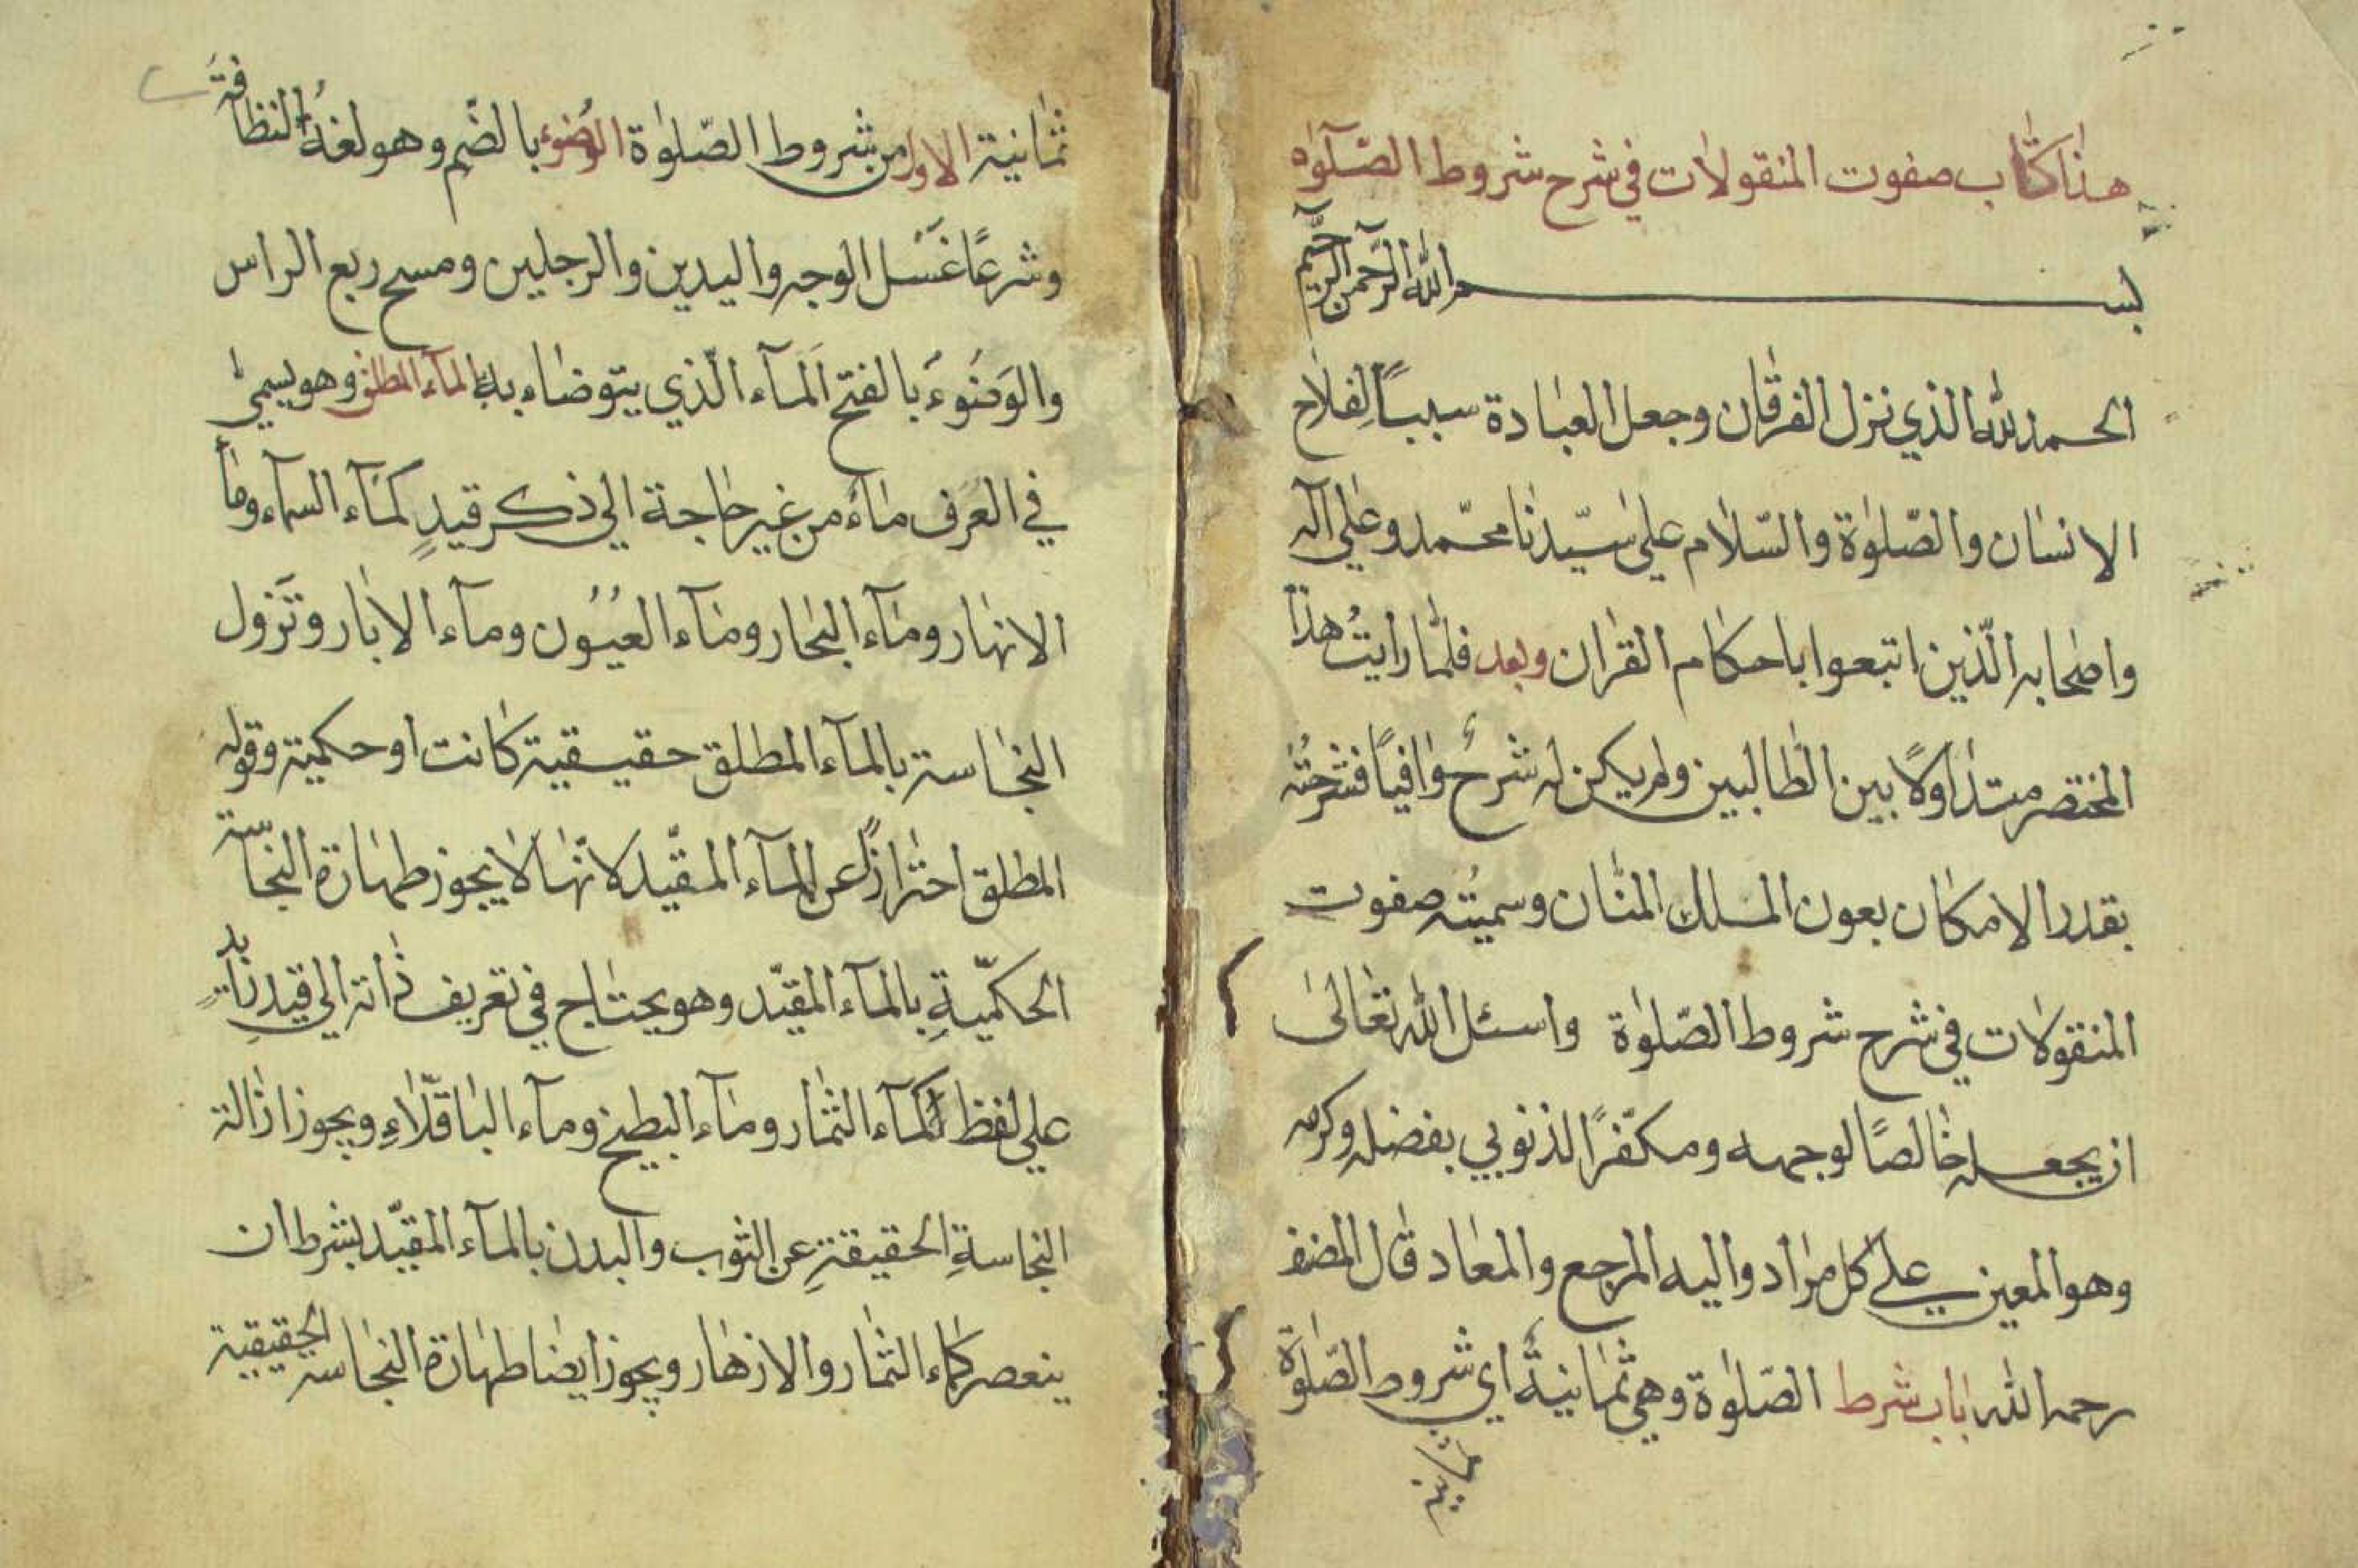 هذا كتاب صفوت المنقولات في شرح شروط الصّلوٰة
بسم الله الرّحمن الرّحيم
الحمد لله الذي نزل الفرقان وجعل العبادة سبباً لِفلاح
الانسان والصّلوٰة والسّلام على سيّدنا محمّد وعلى آله
واصحابه الّذين اتبعوا باحكام القران وبعد فلمّا رايتُ هذا
المختصر متداولاً بين الطالبين ولم يكن له شرحٌ وافياً فشرحتُه
بقدر الامكان بعون الملك المنّان وسميته صفوت
المنقولات في شرح شروط الصّلوٰة واسئل الله تعالىٰ
ان يجعله خالصًا لوجهه ومكفّرًا لذنوبي بفضله وكرمه
وهو المعين على كل مراد واليه المرجع والمعاد قال المصنف
رحمه الله باب شرط الصّلوٰة وهي ثمانيةٌ اي شروط الصّلوٰة
ثمانية
ثمانية الاول من شروط الصّلوٰة الوُضوء بالضّم وهو لغةُ النظافة
وشرعًا غَسْل الوجه واليدين والرجلين ومسح ربع الراس
والوَضُوءَ بالفتح اَلمآء الّذي يتوضاء به الماء المطلق وهو يسمىٰ
في العُرف ماءً من غير حاجة الي ذكر قيدٍ كمآء السمآء وماأ
الانهار ومآء البحار ومآء العُيُون ومآء الابار وتَزول
النجاسة بالمآء المطلق حقيقية كانت او حكمية وقوله
المطلق احترازًا عن المآء المقيّد لانّها لا يجوز طهارة النجاسة
الحكميّةِ بالمآء المقيّد وهو يحتاج في تعريف ذاته الي قيدِ زائدٍ
علي لفظ المآء كمآء الثمار ومآء البطيخ ومآء الباقّلاءِ ويجوز ازالة
النجاسةِ الحقيقةِ عن الثوب والبدن بالمآء المقيّد بشرط ان
ينعصر كماء الثمار والازهار ويجوز ايضا طهارة النجاسه الحقيقية